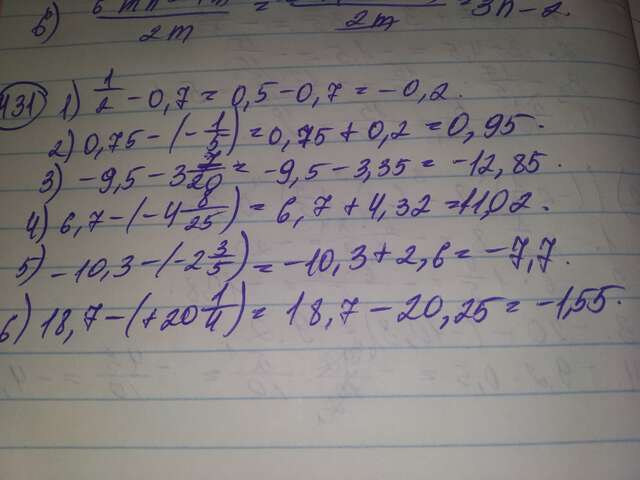 2m = 2m = 3n - 2.
431 1) 1/2 - 0,7 = 0,5 - 0,7 = -0,2.
2) 0,75 - (-1/5) = 0,75 + 0,2 = 0,95.
3) -9,5 - 3 7/20 = -9,5 - 3,35 = -12,85.
4) 6,7 - (-4 8/25) = 6,7 + 4,32 = 11,02.
5) -10,3 - (-2 3/5) = -10,3 + 2,6 = -7,7.
6) 18,7 - (+20 1/4) = 18,7 - 20,25 = -1,55.